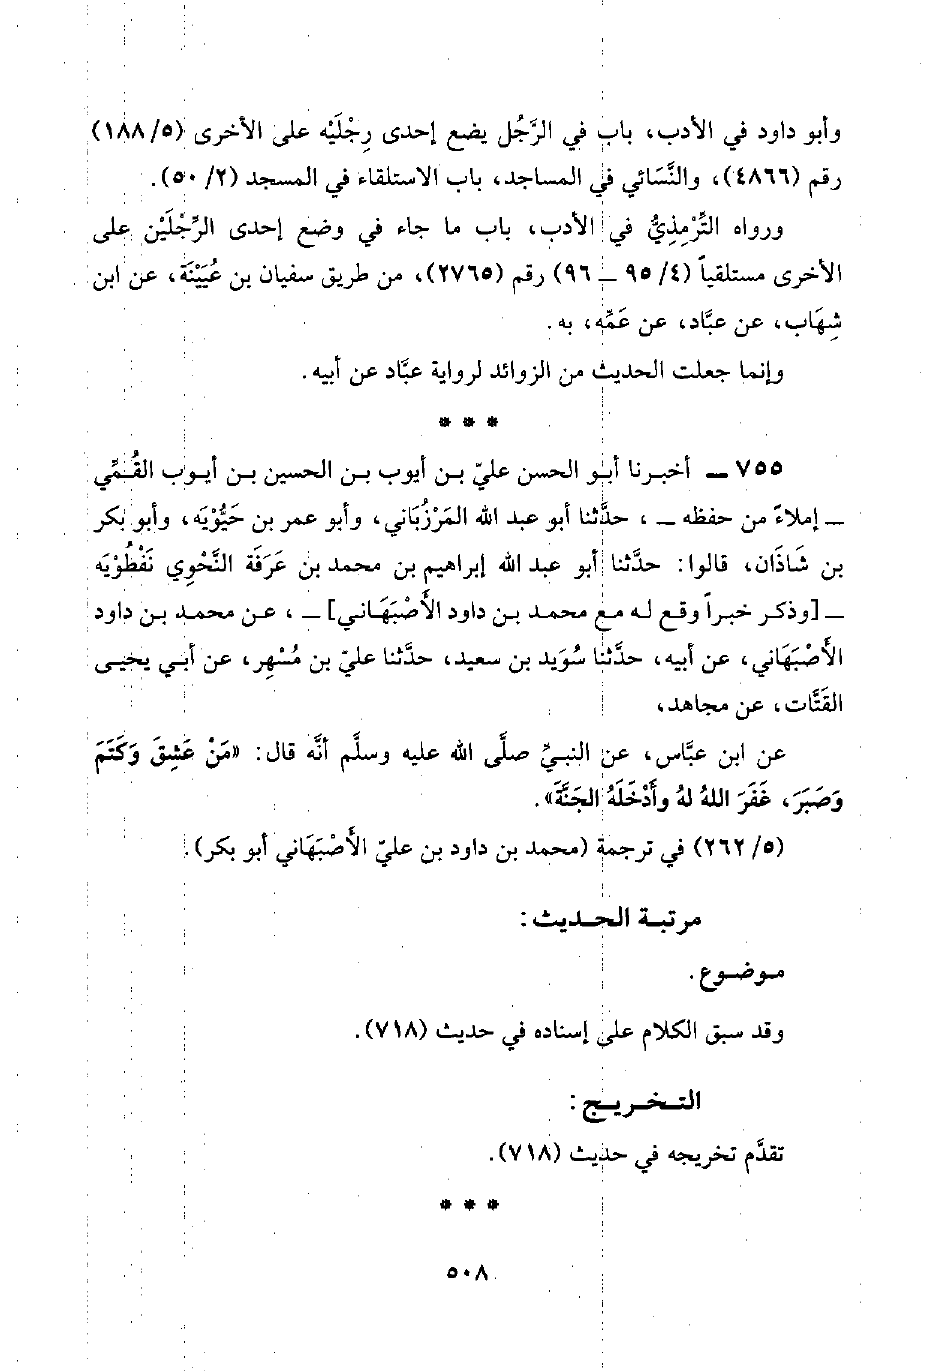 وأبو داود في الأدب، باب في الرَّجُل يضع إحدى رِجْلَيْه على الأخرى (٥/ ١٨٨)
رقم (٤٨٦٦)، والنَّسَائي في المساجد، باب الاستلقاء في المسجد (٢/ ٥٠).
ورواه التِّرْمِذِيُّ في الأدب، باب ما جاء في وضع إحدى الرِّجْلَيْن على
الأخرى مستلقياً (٤/ ٩٥ ــ ٩٦) رقم (٢٧٦٥)، من طريق سفيان بن عُيَيْنَة، عن ابن
شِهَاب، عن عبَّاد، عن عَمِّه، به.
وإنما جعلت الحديث من الزوائد لرواية عبَّاد عن أبيه.
* * *
٧٥٥ ــ أخبرنا أبو الحسن عليّ بن أيوب بن الحسين بن أيوب القُمِّي
ــ إملاءً من حفظه ــ ، حدَّثنا أبو عبد الله المَرْزُبَاني، وأبو عمر بن حَيُّوْيَه، وأبو بكر
بن شَاذَان، قالوا: حدَّثنا أبو عبد الله إبراهيم بن محمد بن عَرَفَة النَّحْوِي نَفْطُوْيَه
ــ [وذكر خبراً وقع له مع محمد بن داود الأَصْبَهَاني] ــ ، عن محمد بن داود
الأَصْبَهَاني، عن أبيه، حدَّثنا سُوَيد بن سعيد، حدَّثنا عليّ بن مُسْهِر، عن أبي يحيى
القَتَّات، عن مجاهد،
عن ابن عبَّاس، عن النبيِّ صلَّى الله عليه وسلَّم أنَّه قال: «مَنْ عَشِقَ وَكَتَمَ
وَصَبَرَ، غَفَرَ اللهُ لهُ وأَدْخَلَهُ الجَنَّةَ».
(٥/ ٢٦٢) في ترجمة (محمد بن داود بن عليّ الأَصْبَهَاني أبو بكر).
مرتبة الحديث:
موضوع.
وقد سبق الكلام على إسناده في حديث (٧١٨).
التخريج:
تقدَّم تخريجه في حديث (٧١٨).
* * *
٥٠٨